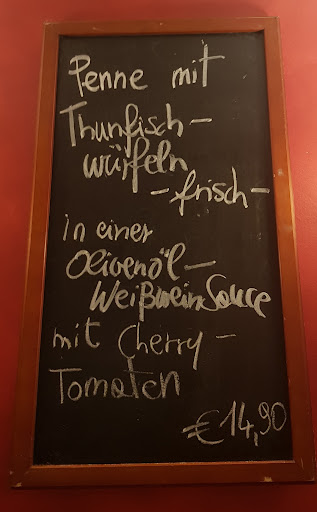 Penne mit
Thunfisch-
würfeln
-frisch-
in einer
Olivenöl-
WeißweinSauce
mit Cherry-
Tomaten
€14,90